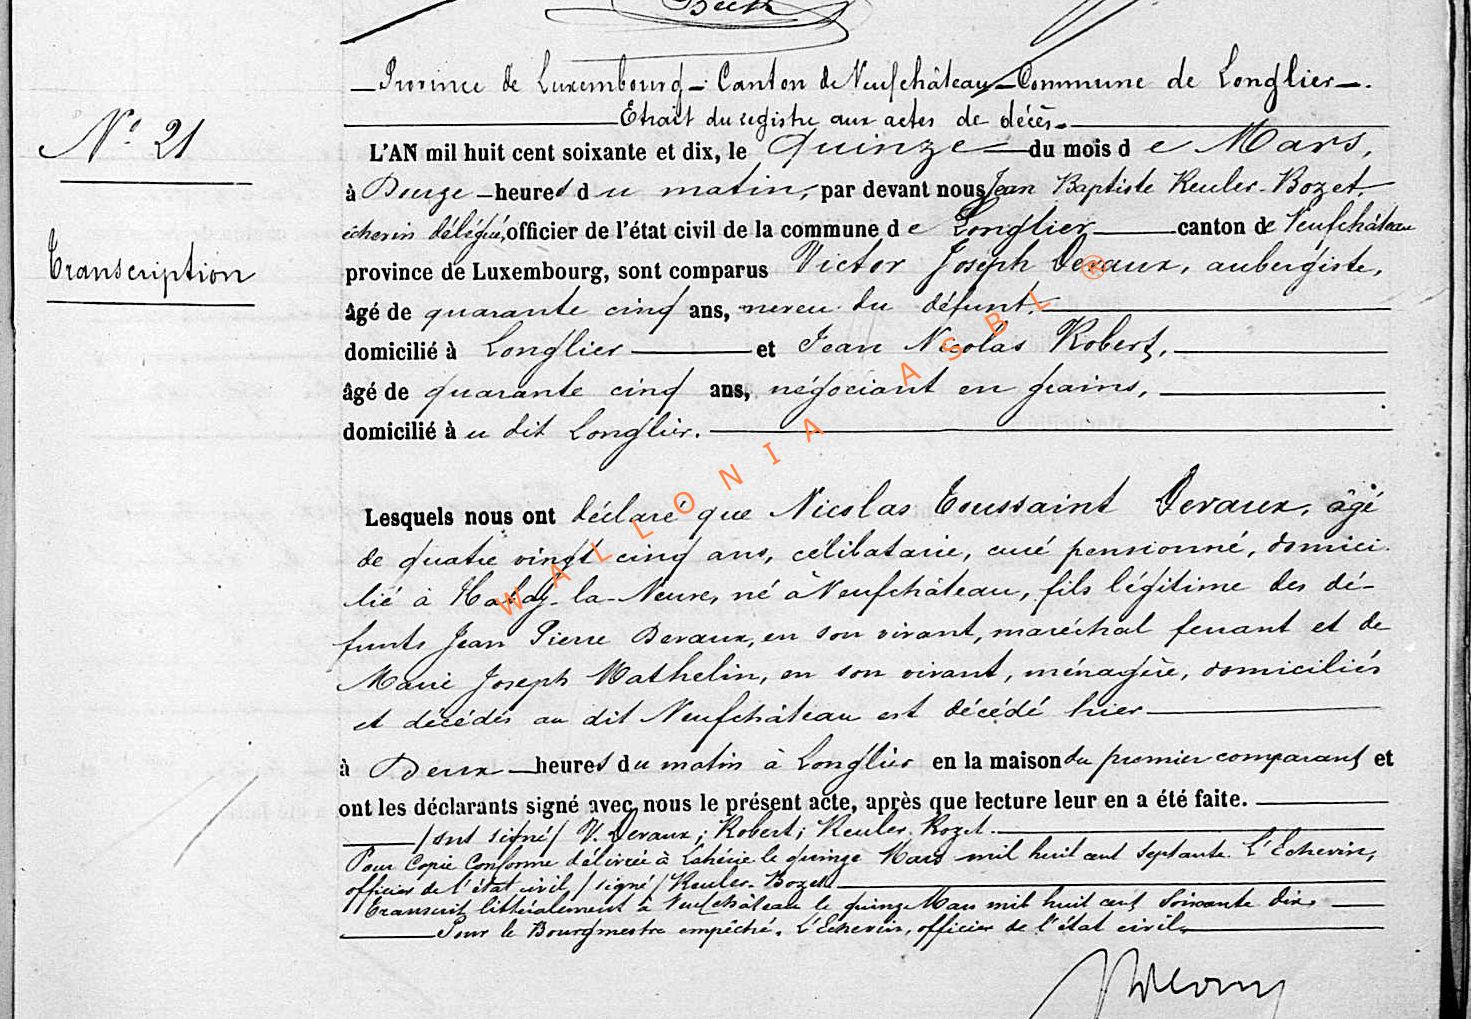 Beck
Province de Luxembourg – Canton de Neufchâteau – Commune de Longlier –.
Etrait du registre aux actes de décès.
Nº 21
L'AN mil huit cent soixante et dix, le quinze du mois d e Mars,
à Douze heures d u matin, par devant nous Jean Baptiste Reuler-Bozet,
échevin délégué, officier de l'état civil de la commune d e Longlier canton de Neufchâteau
Transcription
province de Luxembourg, sont comparus Victor Joseph Devaux, aubergiste,
âgé de quarante cinq ans, neveu du défunt,
domicilié à Longlier et Jean Nicolas Robert,
âgé de quarante cinq ans, négociant en grains,
domicilié à u dit Longlier.
Lesquels nous ont déclaré que Nicolas Toussaint Devaux, âgé
de quatre vingt cinq ans, célibataire, curé pensionné, domici
lié à Habay-la-Neuve, né à Neufchâteau, fils légitime des dé-
funts Jean Pierre Devaux, en son vivant, maréchal ferrant et de
Marie Joseph Mathelin, en son vivant, ménagère, domiciliés
et décédés au dit Neufchâteau est décédé hier
à Deux heures du matin à Longlier en la maison du premier comparant et
ont les déclarants signé avec nous le présent acte, après que lecture leur en a été faite.
/sont signé/ V. Devaux; Robert; Reuler-Bozet.
Pour Copie Conforme délivrée à le quinze Mars mil huit cent septante. L'Echevin,
officier de l'état civil, /signé/ Reuler-Bozet.
Transcrit littéralement à Neufchâteau le quinze Mars mil huit cent soixante dix.
Pour le Bourgmestre empêché. L'Echevin, officier de l'état civil,
WALLONIA ASBL ®